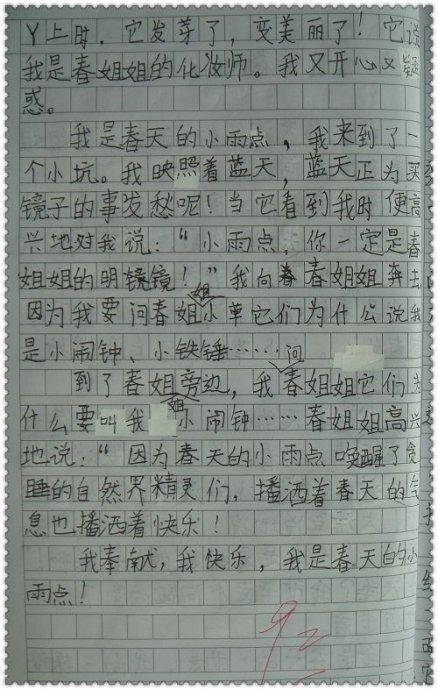 丫上时，它发芽了，变美丽了！它说
我是春姐姐的化妆师。我又开心又疑
惑。
我是春天的小雨点，我来到了一
个小坑。我映照着蓝天，蓝天正为买
镜子的事发愁呢！当它看到我时便高
兴地对我说：“小雨点，你一定是春
姐姐的明镜镜！”我向春春姐姐奔去
因为我要问春姐姐小草它们为什么说我
是小闹钟、小铁锤……
到了春姐姐旁边，我问春姐姐它们为
什么要叫我小闹钟……春姐姐高兴
地说：“因为春天的小雨点唤醒了贪
睡的自然界精灵们，播洒着春天的气
息也播洒着快乐！
我奉献，我快乐，我是春天的小
雨点！
92